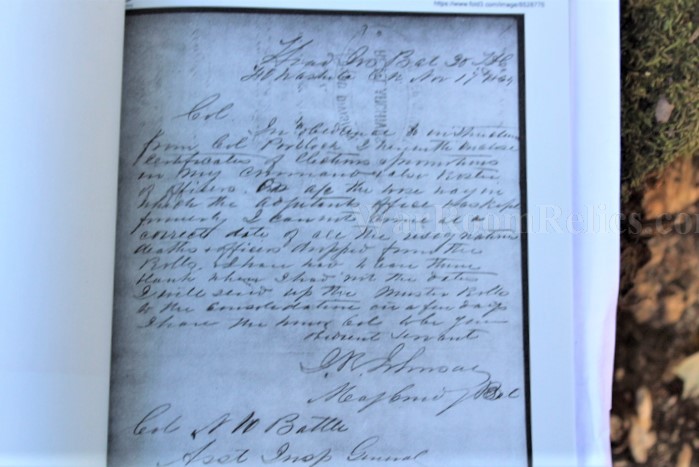 https://www.fold3.com/image/8528776
Head Qrs Bat 20 T.
Ft Washita C.N. Nov 17th 1864
Col
In obedience to instructions
from Col I herewith enclose
certificates of Elections & promotions
in my command also Roster
of officers. the loose way in
which the adjutants office was kept
formerly I cannot
correct date of all the resignations
deaths & officers dropped from the
Rolls. I have had to leave them
blank where I had not the dates
I will send up the Muster Rolls
of the consolidation in a few days
I have the honor Col to be your
obedient Servant
J.R. Johnson
Maj Comd'g Bat
Col N W Battle
Asst Insp General
WarRoomRelics.co